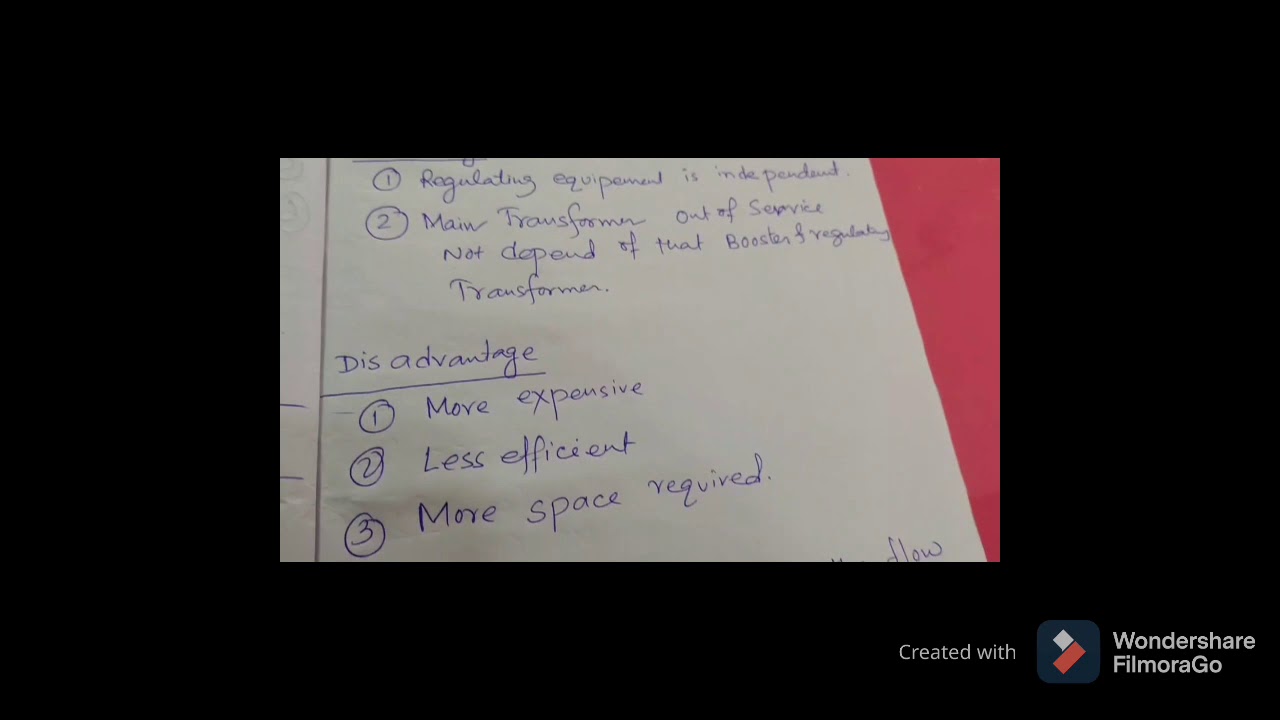 ① Regulating equipement is independent.
② Main Transformer out of Service
Not depend of that Booster & regulating
Transformer.
Dis advantage
① More expensive
② Less efficient
③ More space required.
flow
Created with
Wondershare
FilmoraGo